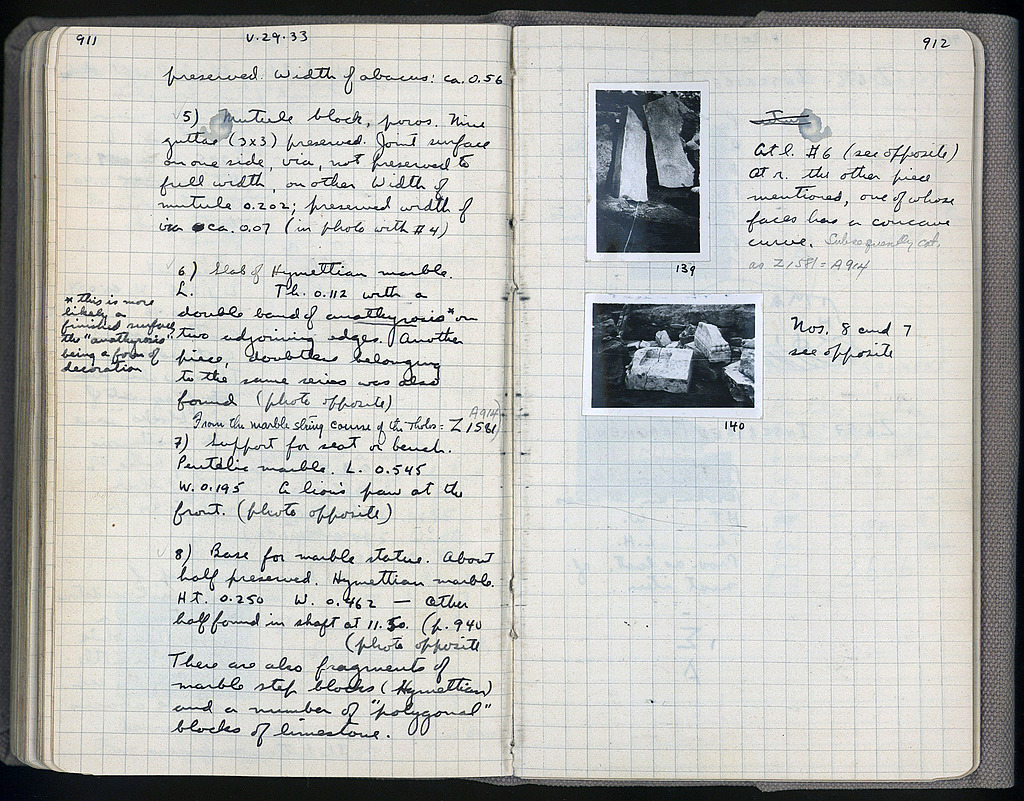 911
V.29.33
preserved. Width of abacus: ca. 0.56
5) Mutule block, poros. Nine
guttae (3x3) preserved. Joint surface
on one side, via, not preserved to
full width, on other. Width of
mutule 0.202; preserved width of
via ca. 0.07 (in photo with #4)
6) Slab of Hymettian marble.
L. Th. 0.112 with a
double band of anathyrosis* on
two adjoining edges. Another
piece, doubtless belonging
to the same series was also
found (photo opposite)
* this is more
likely a
finished surface,
the "anathyrosis"
being a form of
decoration
From the marble string course of the Tholos = Z 1581
A914
7) Support for seat or bench.
Pentelic marble. L. 0.545
W. 0.195 A lion's paw at the
front. (photo opposite)
8) Base for marble statue. About
half preserved. Hymettian marble.
Ht. 0.250 W. 0.462 — Other
half found in shaft at 11.50. (p. 940
(photo opposite
There are also fragments of
marble step blocks (Hymettian)
and a number of "polygonal"
blocks of limestone.
912
At l. #6 (see opposite)
At r. the other piece
mentioned, one of whose
faces has a concave
curve. Subsequently cat.
as Z1581 = A914
139
Nos. 8 and 7
see opposite
140